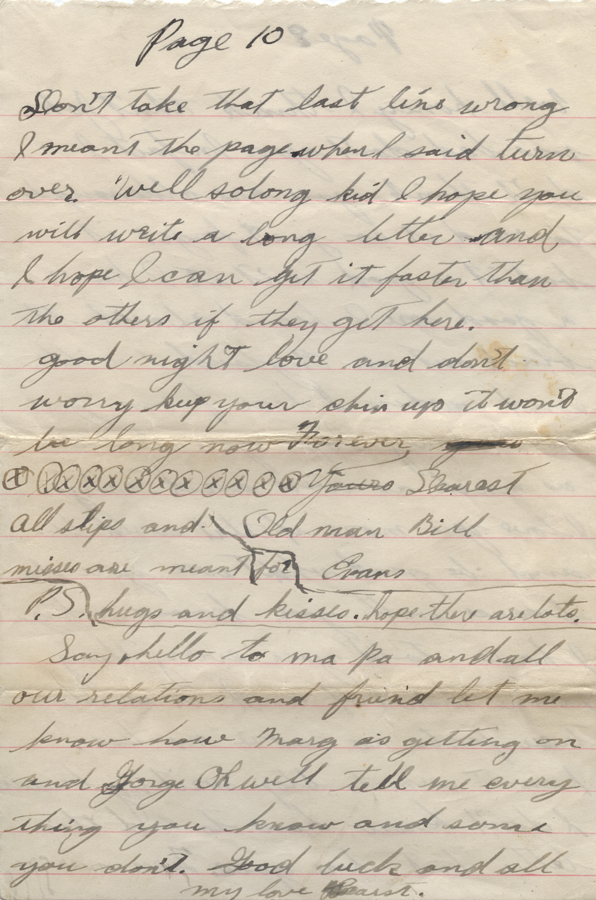 Page 10
Don't take that last line wrong
I meant the page when I said turn
over. Well solong kid I hope you
will write a long letter and
I hope I can get it faster than
the others if they get here.
good night love and don't
worry keep your chin up it won't
be long now Forever,
⊗⊗⊗⊗⊗⊗⊗⊗⊗⊗⊗ Yours Dearest
All slips and Old man Bill
misses are meant for Evans
P.S. hugs and kisses. hope there are lots.
Say hello to ma pa and all
our relations and friend let me
know how Marg is getting on
and Gorge Oh well tell me every
thing you know and some
you don't. Good luck and all
my love Dearest.